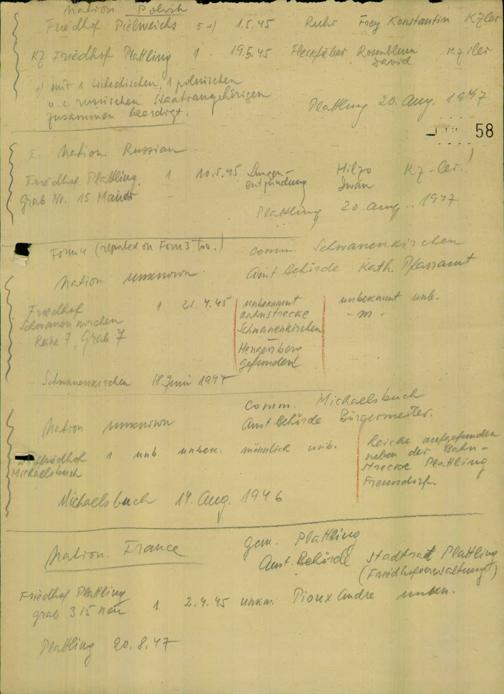 Nation Polish
Friedhof Pielweichs 5 x) 1.5.45 Ruhr Frey Konstantin Kzler
Kz Friedhof Plattling 1 19.5.45 Fleckfieber Rosenblum David Kzler
x) mit 1 tschechischen, 1 polnischen
u. 2 russischen Staatsangehörigen
zusammen beerdigt.
Plattling 20. Aug. 1947
58
Nation Russian
Friedhof Plattling 1 10.5.45 Lungen- Hilzo Kz-ler
Grab No. 15 entzündung Iwan
Plattling 20. Aug. 1947
Form 4 (reported on Form 3 too.) Comm. Schwanenkirchen
Nation unknown Amt Behörde Kath. Pfarramt
Friedhof 1 21.4.45 unbekannt unbekannt unb.
Schwanenkirchen -m-
Reihe 7, Grab 7 Schwanenkirchen
Hengersberg
gefunden
Schwanenkirchen 18. Juni 1947
Comm. Michaelsbuch
Nation unknown Amt Behörde Bürgermeister.
1 unb unbek. männlich unb. Leiche aufgefunden
Michaelsbuch neben der Bahn-
strecke Plattling
Michaelsbuch 14. Aug. 1946
Nation. France Gem. Plattling
Amt. Behörde Stadtrat Plattling
(Friedhofsverwaltung)
Friedhof Plattling
Grab 315 neu 1 2.4.45 unkn. Pioux Andre unkn.
Plattling 20.8.47